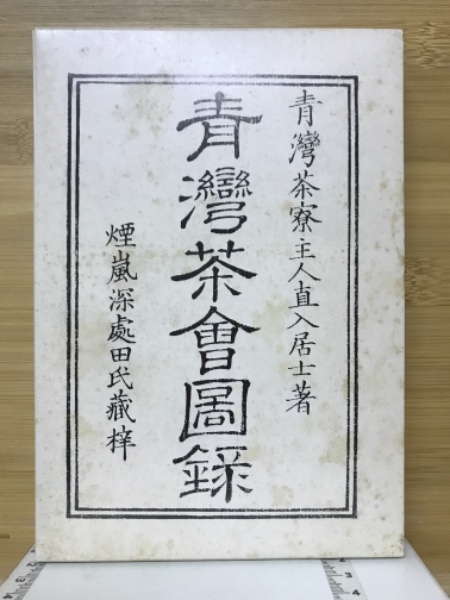 青灣茶寮主人直入居士著
青灣茶會圖録
煙嵐深處田氏藏梓